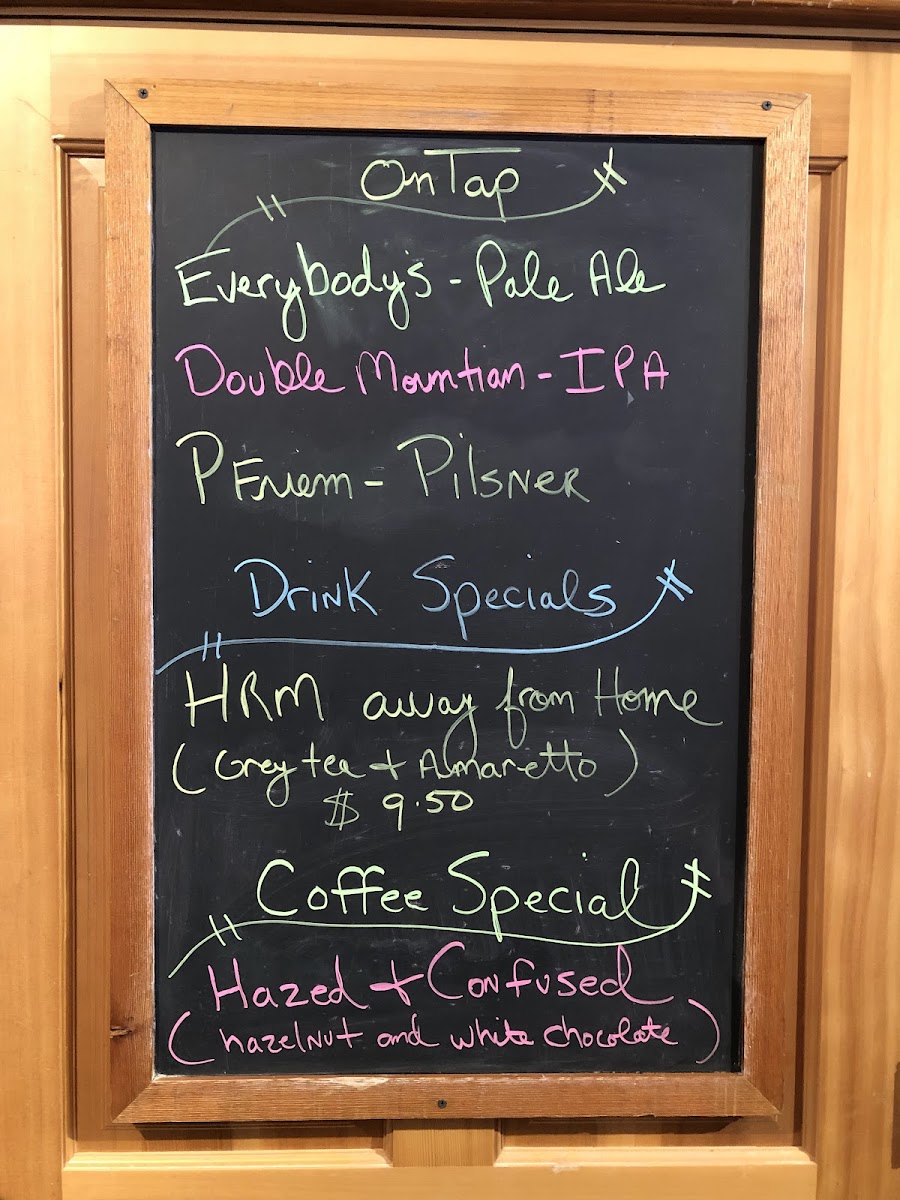 On Tap
Everybody's - Pale Ale
Double Mountian - IPA
PFriem - Pilsner
Drink Specials
HRM away from Home
(Grey tea + Amaretto)
$ 9.50
Coffee Special
Hazed + Confused
(hazelnut and white chocolate)